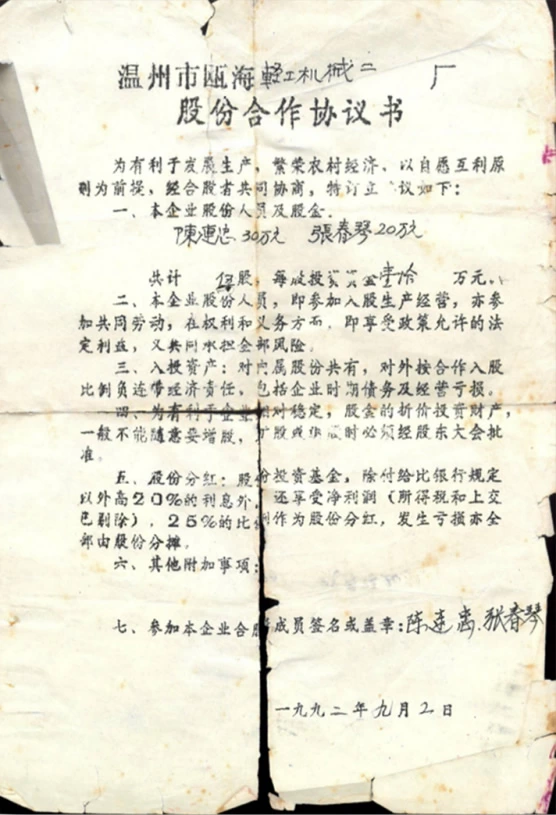 温州市瓯海轻工机械二 厂
股份合作协议书
为有利于发展生产,繁荣农村经济,以自愿互利原
则为前提,经合股者共同协商,特订立 议如下:
一、本企业股份人员及股金.
陳連忠30万元 張春琴20万元
共计 伍股,每股投资资金壹拾 万元.
二、本企业股份人员,即参加入股生产经营,亦参
加共同劳动,在权利和义务方面,即享受政策允许的法
定利益,义共同承担全部风险。
三、入投资产:对内属股份共有,对外按合作入股
比例负连带经济责任,包括企业时期债务及经营亏损。
四、为有利于企业相对稳定,股金的折价投资财产,
一般不能随意要增股,扩股或 股时必须经股东大会批
准。
五、股份分红:股份投资基金,除付给比银行规定
以外高20%的利息外,还享受净利润(所得税和上交
已剔除),25%的比例作为股份分红,发生亏损亦全
部由股份分摊。
六、其他附加事项:
七、参加本企业合股成员签名或盖章:陈连忠.张春琴
一九九二年九月2日